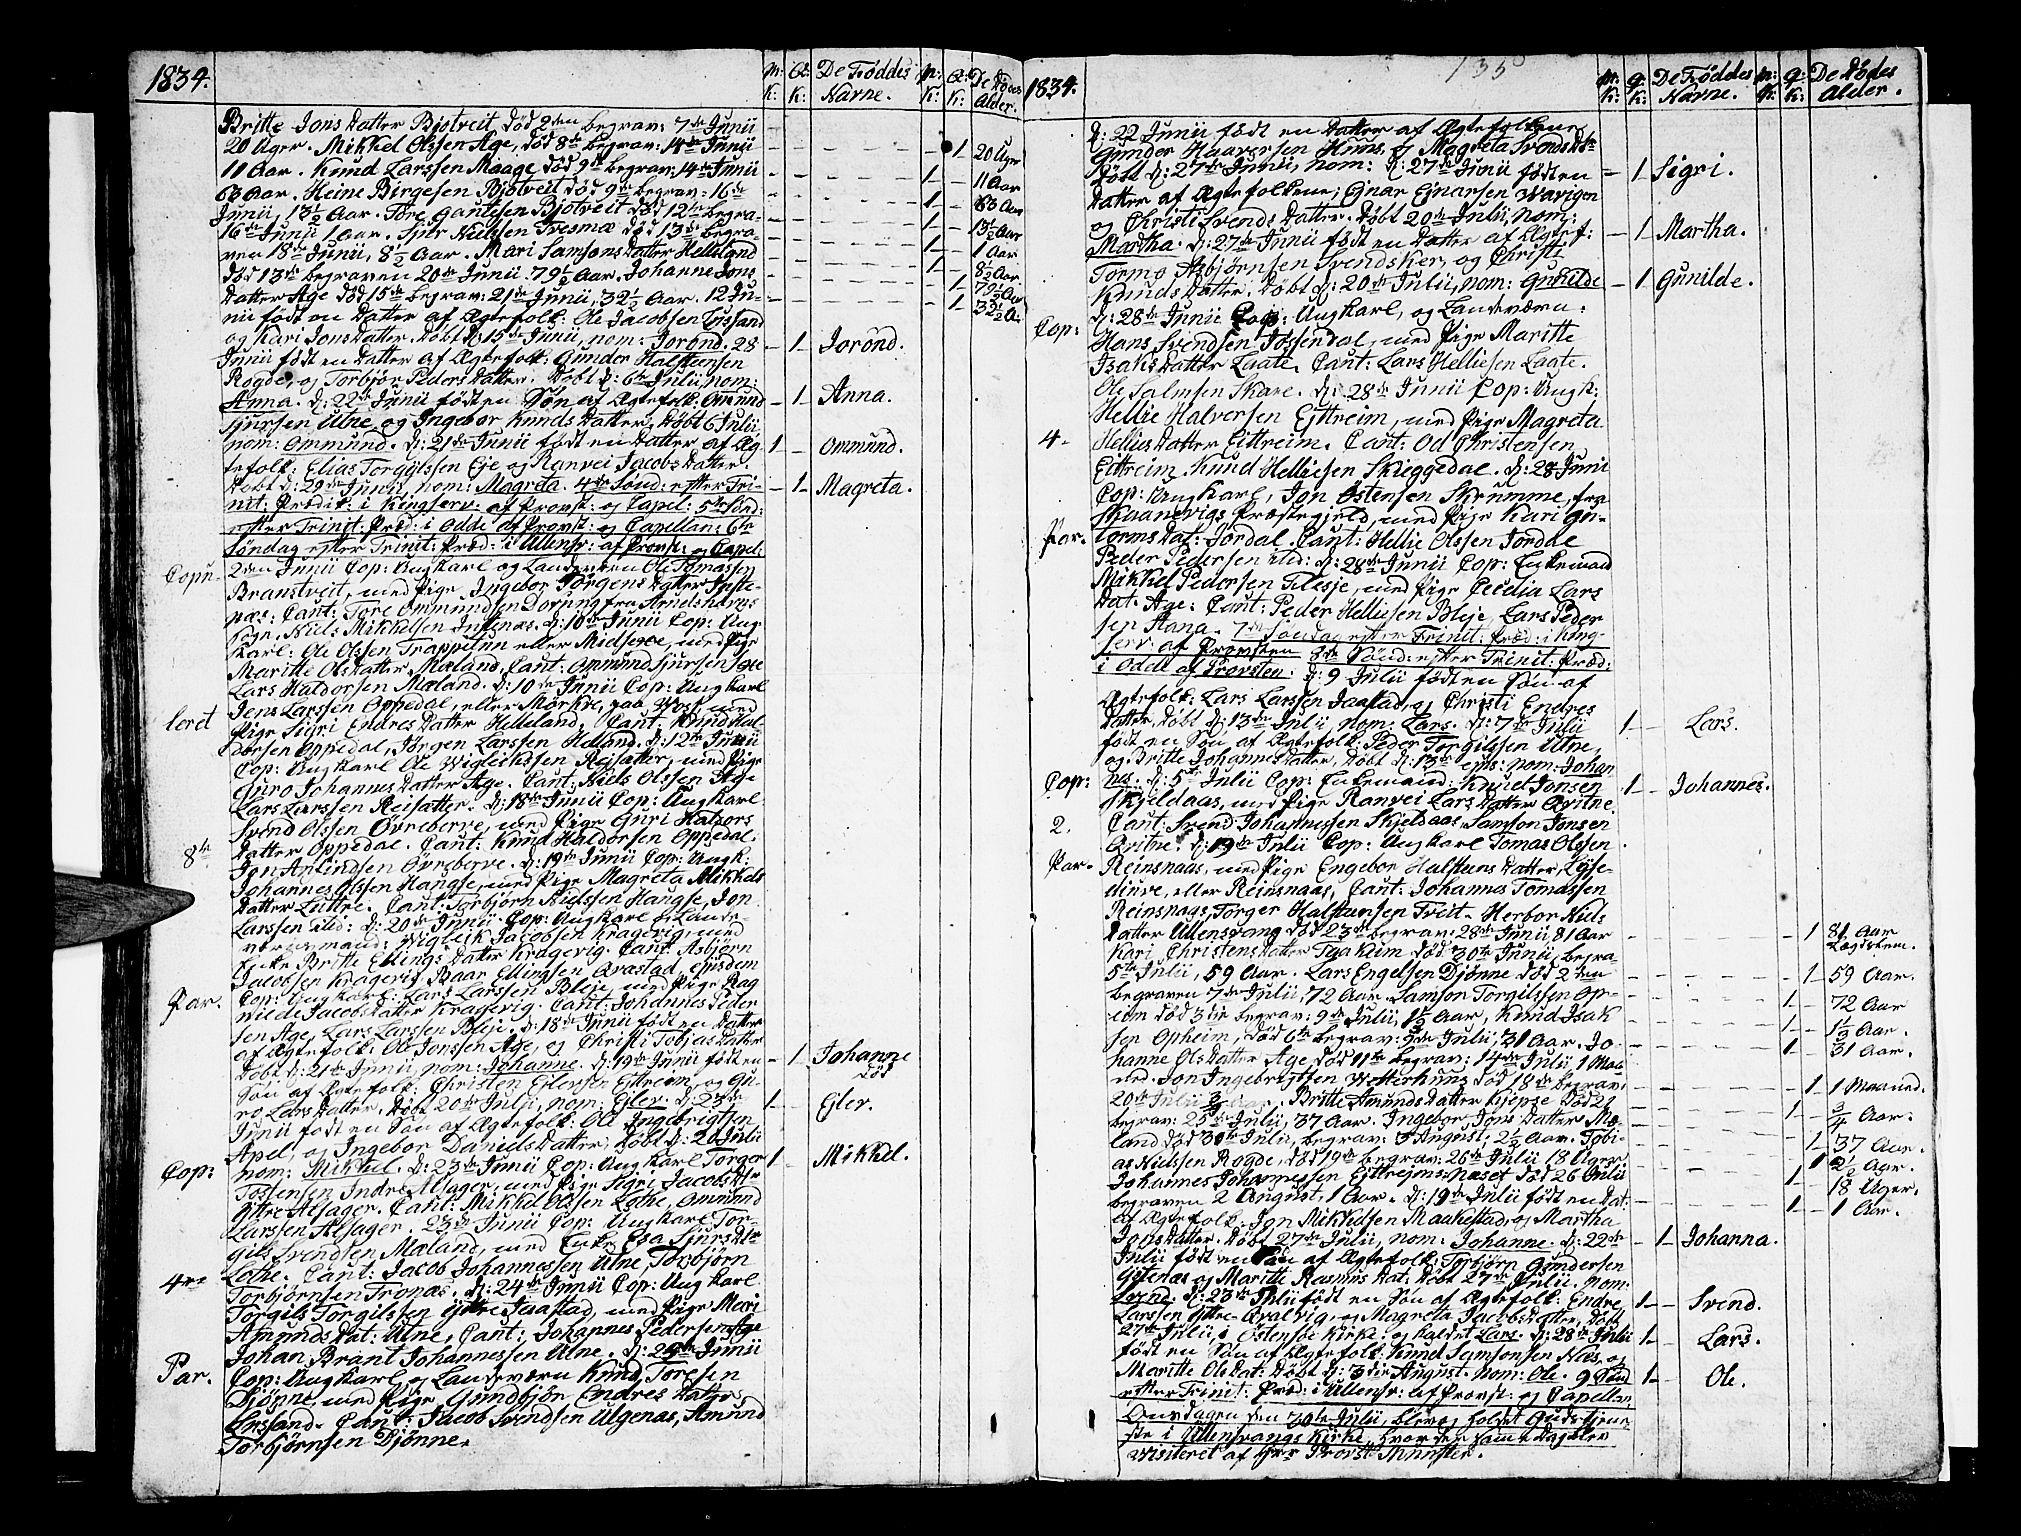 1834.
M: K:
Q: K:
De Føddes Navne.
M: K:
Q: K:
De Dødes Alder.
Britte Jons Datter Bjotveit død 2den begrav: 7de Junii
20 Uger. Mikkel Olssen Age, død 8de begrav: 14de Junii
11 Aar. Knud Larssen Maage død 9de begrav: 14de Junii
Aar. Heine Birgesen Bjotveit død 9de begrav: 16de
Junii, 13½ Aar. Tore Gautesen Bjotveit død 12te begra-
16de Junii 1 Aar. Nielsen Tresmæ død 13de begra-
ven 18de Junii, 8½ Aar. Mari Samsons Datter Helleland
død 13de begraven 20de Junii 79½ Aar. Johanne Jons
Datter Age død 15de begrav: 21de Junii, 32½ Aar. 12 Ju-
nii født en Datter af Ægtefolk: Ole Jacobsen Lussand
og Kari Jons Datter. Døbt d: 15de Junii, nom: Jorønd. 28
Junii født en Datter af Ægtefolk: Gunder Halstensen
Rogde, og Torbjør Peders Datter. Døbt d: 6te Julii, nom:
Anna. d: 22de Junii født en Søn af Ægtefolk: Omund
Sjursen Utne og Ingebor Knuds Datter, Døbt 6 Julii
nom: Ommund. d: 21de Junii født en Datter af Æg-
tefolk: Elias Torgilssen Eje og Ranvei Jacobs Datter.
Døbt d: 29de Junii, nom: Magreta. 4de Sønd: efter Tri-
nit: Prædik: i Kingserv: af Provst: og Capel: 5te Sønd:
efter Trinit: Præd: i Odde af Provst: og Capellan: 6te
Søndag efter Trinit: Præd: i Ullensv: af Provst: og Capel:
2den Junii Cop: Ungkarl og Landeværn Ole Tomassen
Branstveit, med Pige Ingebor Jørgens Datter Inste-
næs: Caut: Tore Ommundsen
Niels Mikkelsen Instenæs. d: 10de Junii Cop: Ung-
karl: Ole Olssen Trappetun eller Midsexe, med Pige
Maritte Ols Datter Mæland, Caut: Ommund Sjursen Sexe
Lars Haldorsen Mæland. d: 10de Junii Cop: Ungkarl
Jens Larssen Oppedal, eller Mørkve, paa Vos, med
Pige Sigri Endres Datter Helleland. Caut: Knud Hal-
dorsen Oppedal, Jørgen Larssen Helland. d: 12te Junii
Cop: Ungkarl Ole Wiglikssen Reisæter, med Pige
Guro Johannes Datter Age. Caut: Niels Olssen Age
Lars Larssen Reisæter. d: 18de Junii Cop: Ungkarl
Svend Olssen Øvreberve, med Pige Guri Haldors
Datter Oppedal. Caut: Knud Haldorsen Oppedal.
Jon Amundsen Øvreberve. d: 19de Junii Cop: Ungk:
Johannes Olssen Hangse, med Pige Magreta Mikkels
Datter Luttre. Caut: Torbjørn Nielssen Hangse, Jon
Larssen ibid: d: 20de Junii Cop: Ungkarl og Lande-
værnsmand: Wigleik Jacobsen Kragevig, med
Enke Britte Ellings Datter Kragevig. Caut: Asbjørn
Jacobsen Kragevig Baar Ellingsen Qvæstad, ejusdem
Cop: Ungkarl: Lars Larssen Bleje, med Pige Rag
nilde Jacobs Datter Kragevig. Caut: Johannes Peder
sen Age, Lars Larssen Bleje. d: 18de Junii født en Datter
af Ægtefolk: Ole Jonssen Age, og Christi Tobjas Datter
Døbt d: 21de Junii, nom: Johanne. d: 19de Junii født en
Søn af Ægtefolk: Christen Eilersen Eittreim, og Gu-
ro Lars Datter, Døbt 20de Julii, nom: Ejler. d: 23de
Junii født en Søn af Ægtefolk: Ole Ingebrigtsen
Apel, og Ingebor Daniels Datter, Døbt d: 20 Julii
nom: Mikkel. d: 23de Junii Cop: Ungkarl Torger
Tostensen Indre Alsager, med Pige Sigri Jacobs Dtr
Yttre Alsager. Caut: Mikkel Olssen Lothe, Ommund
Larssen Alsager. 23de Junii Cop: Ungkarl Tor-
gils Svendsen Mæland, med Enke Esa Sjurs Dtr
Lothe. Caut: Jacob Johannessen Utne Torbjørn
Torbjørnsen Tronæs. d: 24de Junii Cop: Ungkarl
Torgils Torgilssen Yttre Jaastad, med Pige Mari
Amunds Dat: Utne, Caut: Johannes Pedersen Age
Johan Brant Johannessen Utne. d: 29de Junii
Cop: Ungkarl og Landeværn Knud Toresen
Djønne, med Pige Gundbjør Endres Datter
Lussand. Caut: Jacob Svendsen Ulgenæs, Amund
Torbjørnsen Djønne.
Copu-
leret
8te
Par.
Cop:
4re
Par.
1 20 Uger
1 11 Aar
1 83 Aar
1 13½ Aar
1 1 Aar
1 8½ Aar
1 79½ Aar
1 32½ A.
1 Jorønd.
1 Anna.
1 Ommund.
1 Magreta.
1 Johanne død
1 Ejler.
1 Mikkel.
1834.
135
M: K:
Q: K:
De Føddes Navne.
M: K:
Q: K:
De Dødes Alder.
d: 22 Junii født en Datter af Ægtefolkene
Gunder Haaversen Huus, og Magreta Svends Dtr
Døbt d: 27de Junii, nom: d: 27de Junii født en
Datter af Ægtefolkene; Ejnar Ejnarsen Warigen
og Christi Svends Datter. Døbt 20de Julii, nom:
Martha. d: 27de Junii født en Datter af Ægtef:
Tormo Asbjørnsen Svendsker, og Christi
Knuds Datter. Døbt d: 20de Julii, nom: Gunilde
d: 28de Junii Cop: Ungkarl, og Landeværn:
Hans Svendsen Jøssendal, med Pige Maritte
Isaks Datter Laate. Caut: Lars Helliesen Laate.
Ole Salmsen Skare. d: 28de Junii Cop: Ungk:
Hellie Halversen Eittreim, med Pige Magreta
Hellies Datter Eittreim. Caut: Od Christensen
Eittreim. Knud Helliesen Skieggedal. d: 28 Junii
Cop: Ungkarl, Jon Østensen Skrumme, fra
Skaanevigs Præstegjeld, med Pige Kari Gu-
torms Dat: Jordal. Caut: Hellie Olssen Jordal
Peder Pedersen ibid: d: 28de Junii Cop: Enkemand
Mikkel Pedersen Tilesje, med Pige Cecelia Lars
Dat: Age: Caut: Peder Helliesen Bleje, Lars Peder
sen Aana. 7de Søndag efter Trinit: Præd: i King-
serv: af Provsten 8de Sønd: efter Trinit: Præd:
i Odde af Provsten. d: 9 Julii født en Søn af
Ægtefolk: Lars Larssen Jaastad, og Christi Endres
Datter, Døbt d: 13de Julii nom: Lars. d: 7de Julii
født en Søn af Ægtefolk: Peder Torgilssen Utne,
og Britte Johannes Datter, Døbt d: 13de ejus: nom: Johan
nes. d: 5te Julii Cop: Enkemand: Knud Jonsen
Skjeldaas, med Pige Ranvei Lars Datter Qvitne
Caut: Svend Johannessen Skjeldaas, Samson Jonsen
Qvitne. d: 19de Julii Cop: Ungkarl Tomas Olssen
Reinsnaas, med Pige Engebor Halstens Datter, Lyse-
, eller Reinsnaas, Caut: Johannes Tomassen
Reinsnaas, Torger Halstensen Tveit. Herbor Niels
Datter Ullensvang død 23de begrav: 28de Junii, 81 Aar
Kari Christens Datter Tyakeim død 30te Junii, begra
5te Julii, 59 Aar. Lars Engelsen Djønne død 2den
begraven 7de Julii, 72 Aar. Samson Torgilssen Op-
eim død 3die begrav: 9de Julii, 1½ Aar, Knud Isak
sen Opheim, død 6te begrav: 9de Julii, 31 Aar. Jo-
hanne Ols Datter Age død 11te begrav: 14de Julii 1 Maa
ned. Jon Ingebrigtsen død 18de begrav:
20de Julii ¾ Aar. Britte Amunds Datter Kjepse død 21
begrav: 25de Julii, 37 Aar. Ingebor Jons Datter Mæ-
land død 30te Julii, begrav: 5 August, 2½ Aar. Tobi-
as Nielssen Rogde, død 19de begrav: 26de Julii 18 Uger
Johannes Johannessen Eittrejms-Næset død 26 Julii
begraven 2 August, 1 Aar. d: 19de Julii født en Dat:
af Ægtefolk: Jon Mikkelsen Maakestad, og Martha
Jons Datter. Døbt 27de Julii, nom: Johanne. d: 22de
Julii født en Søn af Ægtefolk: Torbjørn Gundersen
Ystenæs og Maritte Rasmus Dat. Døbt 27de Julii. nom:
Svend. d: 23de Julii født en Søn af Ægtefolk: Endre
Larssen Yttre-Qvalvig, og Magreta Jacobs Datter, Døbt
27de Julii i Østensøe Kirke: og kaldet Lars. d: 28de Julii
født en Søn af Ægtefolk: Knud Samsonsen Næs, og
Maritte Ols Dat: Døbt d: 3die August. nom: Ole. 9 Sønd
efter Trinit: Præd: i Ullensv: af Provst: og Capellan,
Onsdagen den 30te Julii, blev holdet Gudstjene-
ste i Ullensvangs Kirke, hvor den samme Dag blev
visiteret af Hrr Provst Münster.
Cop:
4
Par.
Cop:
2.
Par.
1 Sigri.
1 Martha.
1 Gunilde.
1 Lars.
1 Johannes.
1 81 Aar Lægdslem.
1 59 Aar.
1 72 Aar
1 1½ Aar.
1 31 Aar.
1 1 Maaned.
1 ¾ Aar.
1 37 Aar.
1 2½ Aar.
1 18 Uger.
1 1 Aar.
1 Johanna.
1 Svend.
1 Lars.
1 Ole.